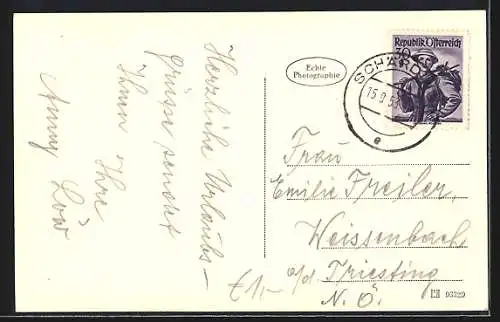 Herzliche Urlaubs-
grüsse sendet
Ihnen Ihre
Anny Löw
Echte
Photographie
Republik Österreich
30
SCHÄRD
15.9.53
e
Frau
Emilie Treiler,
Weissenbach
a/d. Triesting
N. Ö.
€1,-
93729